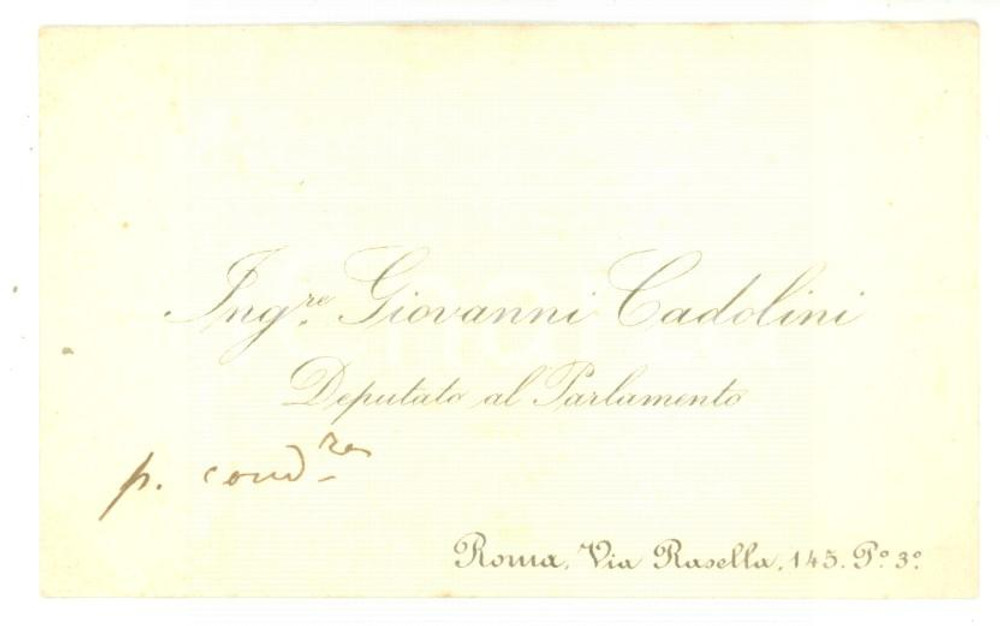 Ing.re Giovanni Cadolini
Deputato al Parlamento
p. cond.ze
Roma, Via Rasella, 145. P.o 3.o